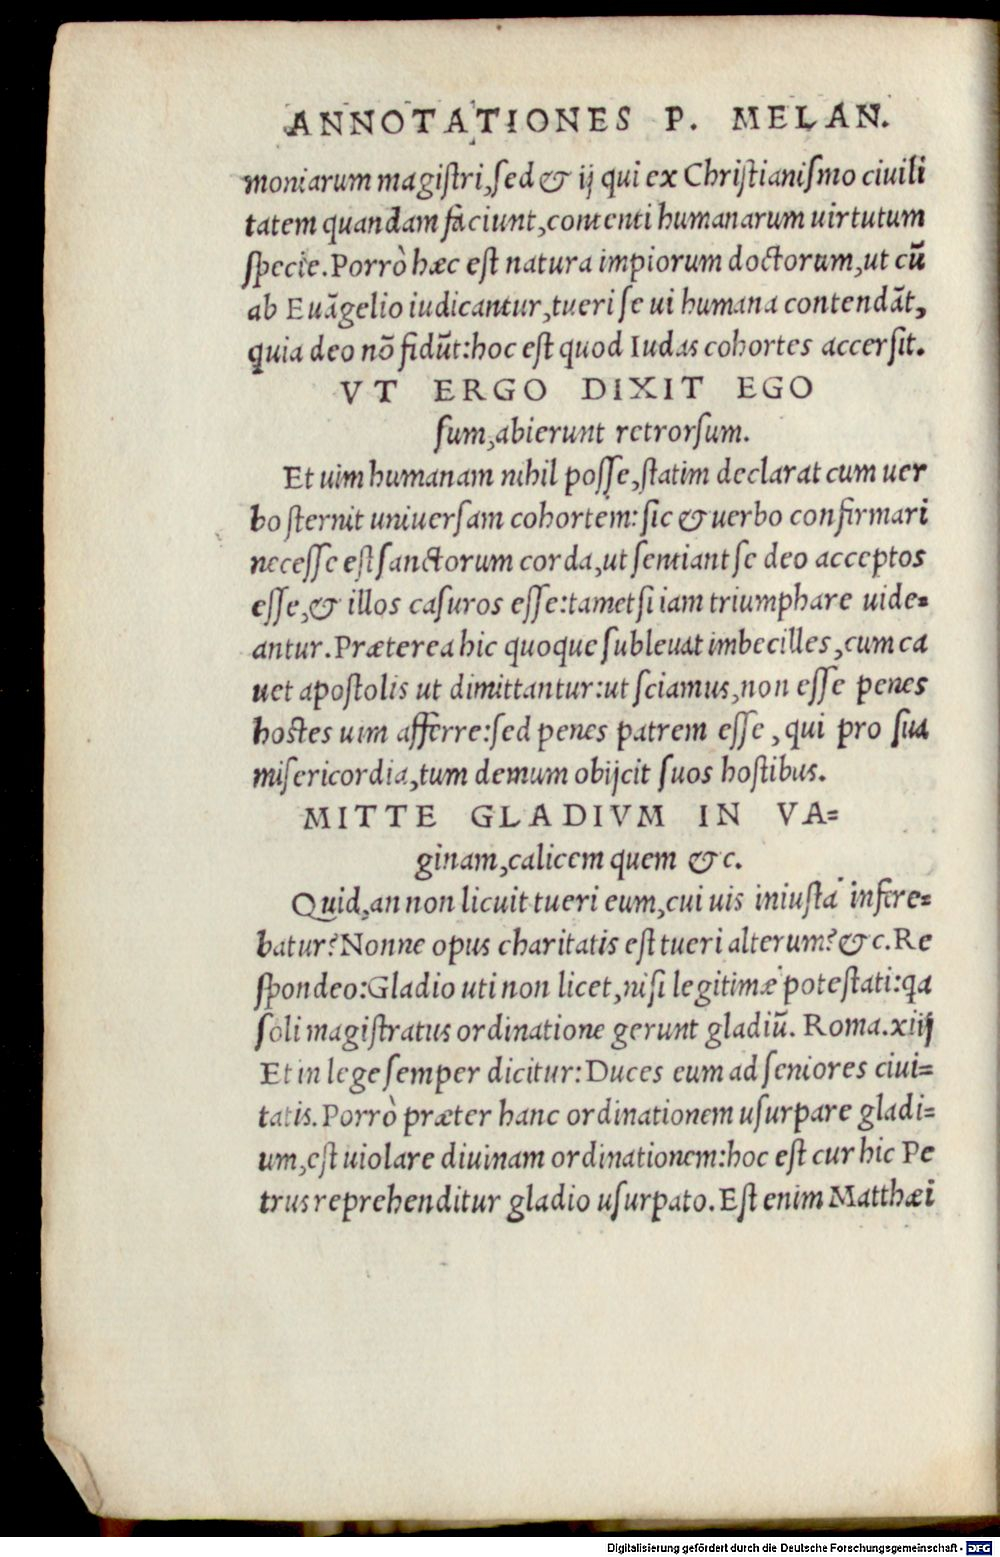 ANNOTATIONES P. MELAN.
moniarum magiſtri, ſed & ij qui ex Chriſtianiſmo ciuili
tatem quandam faciunt, contenti humanarum uirtutum
ſpecie. Porrò hæc eſt natura impiorum doctorum, ut cū
ab Euāgelio iudicantur, tueri ſe ui humana contendāt,
quia deo nō fidūt: hoc eſt quod Iudas cohortes accerſit.
VT ERGO DIXIT EGO
ſum, abierunt retrorſum.
Et uim humanam nihil poſſe, ſtatim declarat cum uer
bo ſternit uniuerſam cohortem: ſic & uerbo confirmari
neceſſe eſt ſanctorum corda, ut ſentiant ſe deo acceptos
eſſe, & illos caſuros eſſe: tametſi iam triumphare uide=
antur. Præterea hic quoque ſubleuat imbecilles, cum ca
uet apoſtolis ut dimittantur: ut ſciamus, non eſſe penes
hoſtes uim afferre: ſed penes patrem eſſe, qui pro ſua
miſericordia, tum demum obijcit ſuos hoſtibus.
MITTE GLADIVM IN VA=
ginam, calicem quem &c.
Quid, an non licuit tueri eum, cui uis iniuſta infere=
batur? Nonne opus charitatis eſt tueri alterum? &c. Re
ſpondeo: Gladio uti non licet, niſi legitimæ poteſtati: qa
ſoli magiſtratus ordinatione gerunt gladiū. Roma. xiij
Et in lege ſemper dicitur: Duces eum ad ſeniores ciui=
tatis. Porrò præter hanc ordinationem uſurpare gladi=
um, eſt uiolare diuinam ordinationem: hoc eſt cur hic Pe
trus reprehenditur gladio uſurpato. Eſt enim Matthæi
Digitalisierung gefördert durch die Deutsche Forschungsgemeinschaft - DFG